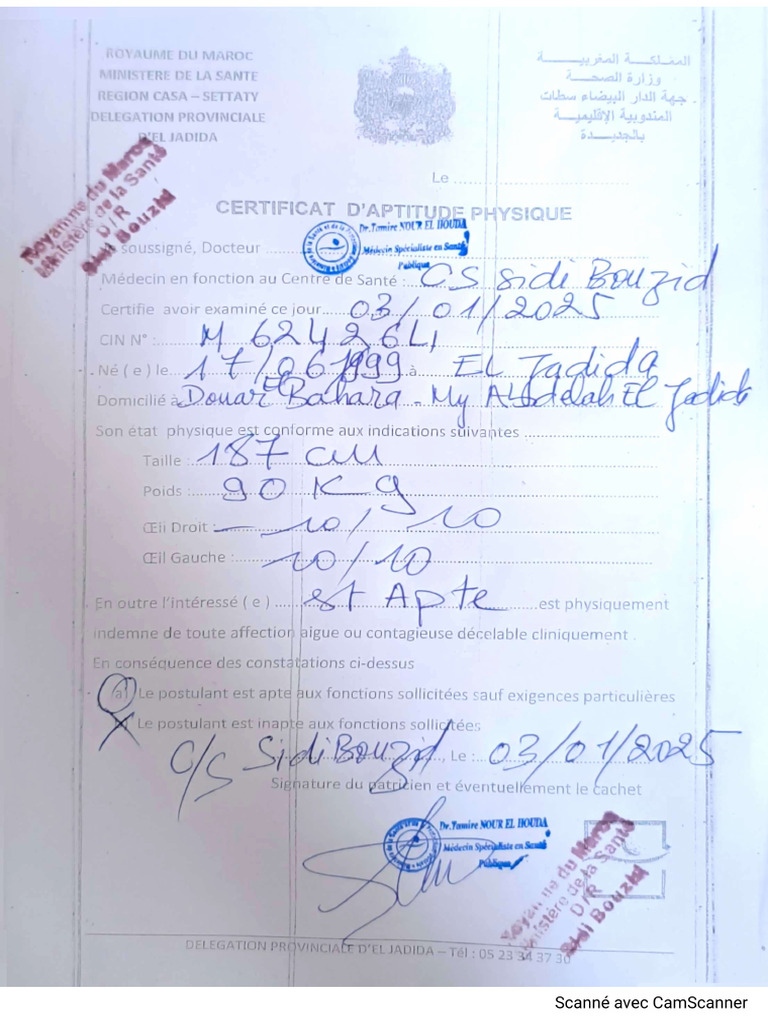 ROYAUME DU MAROC
MINISTERE DE LA SANTE
REGION CASA – SETTATY
DELEGATION PROVINCIALE
D'EL JADIDA
المملكة المغربية
وزارة الصحة
جهة الدار البيضاء سطات
المندوبية الإقليمية
بالجديدة
Royaume du Maroc
Ministère de la Santé
D/R
Sidi Bouzid
Le
CERTIFICAT D'APTITUDE PHYSIQUE
soussigné, Docteur
Dr.Tamire NOUR EL HOUDA
Médecin Spécialiste en Santé
Publique
Médecin en fonction au Centre de Santé : CS Sidi Bouzid
Certifie avoir examiné ce jour 03/01/2025
CIN N° : M 624264
Né ( e ) le 17/06/1999 à EL Jadida
Domicilié à Douar El Bahara - My Abdelah El Jadida
Son état physique est conforme aux indications suivantes
Taille : 187 cm
Poids : 90 Kg
Œil Droit : 10/10
Œil Gauche : 10/10
En outre l'intéressé ( e ) est Apte est physiquement
indemne de toute affection aigue ou contagieuse décelable cliniquement .
En conséquence des constatations ci-dessus
a) Le postulant est apte aux fonctions sollicitées sauf exigences particulières
Le postulant est inapte aux fonctions sollicitées
C/S Sidi Bouzid, Le : 03/01/2025
Signature du patricien et éventuellement le cachet
Dr.Tamire NOUR EL HOUDA
Médecin Spécialiste en Santé
Publique
Royaume du Maroc
Ministère de la Santé
D/R
Sidi Bouzid
DELEGATION PROVINCIALE D'EL JADIDA – Tél : 05 23 34 37 30
Scanné avec CamScanner